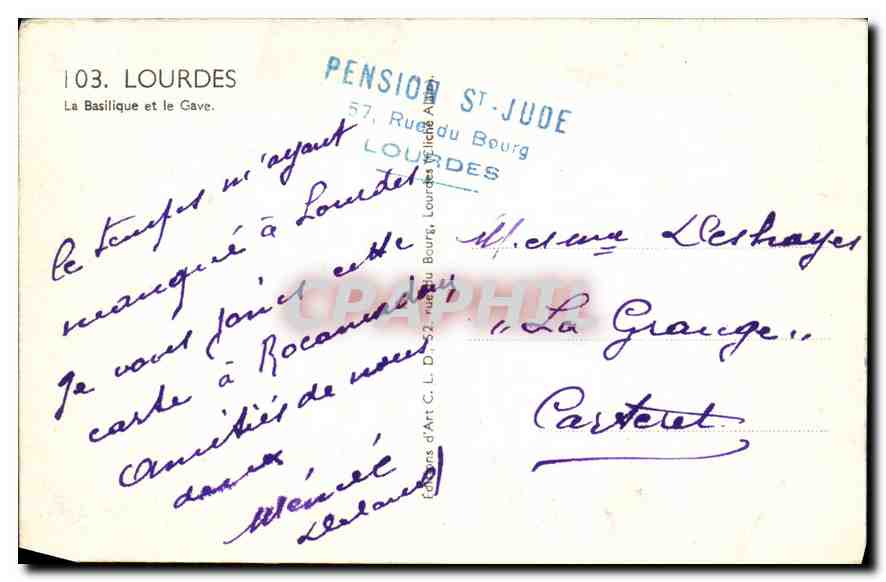 103. LOURDES
La Basilique et le Gave.
PENSION ST-JUDE
57, Rue du Bourg
LOURDES
le temps m'ayant
manqué à Lourdes
Je vous joins cette
carte à Rocamadour
Amitiés de nous
deux
Editions d'Art C. L. D. 52, rue du Bourg, Lourdes
M. et Mme Deshayes
"La Grange"
Carteret
CRAPHIL